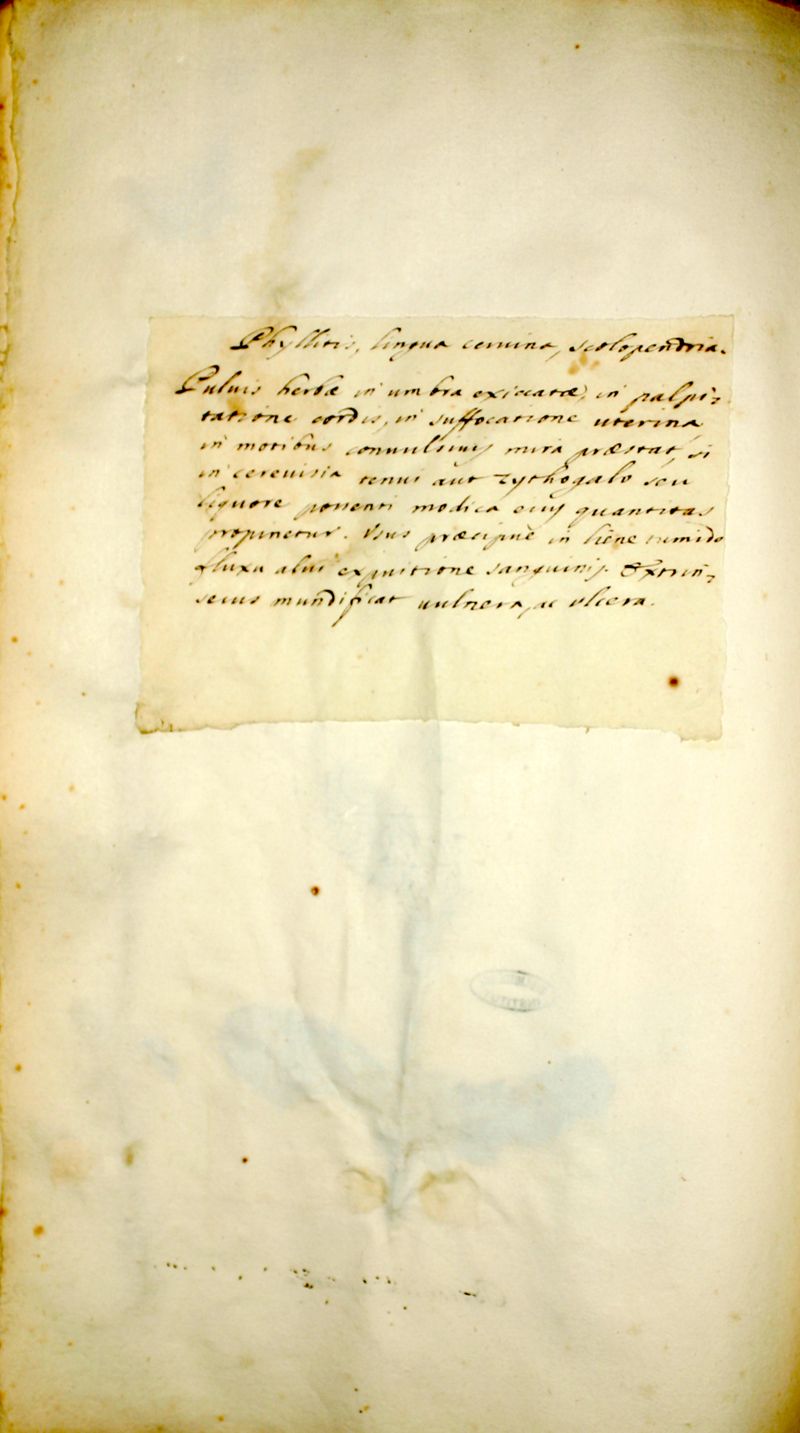 Phyllitis, lingua ceruina, scolopendria.
Puluis herbæ in umbra exsiccatæ, in palpi,
tatione cordis, in suffocatione uterina
in motibus conuulsiuis mirè præstat si
in cereuisia tenui aut zythogalo seu
liquore possenti modica eius quantitas
propinetur. Usus præcipuè in liene tumido
fluxu alui exputione sanguinis. Extrin,
secus mundificat uulnera, u ulcera.